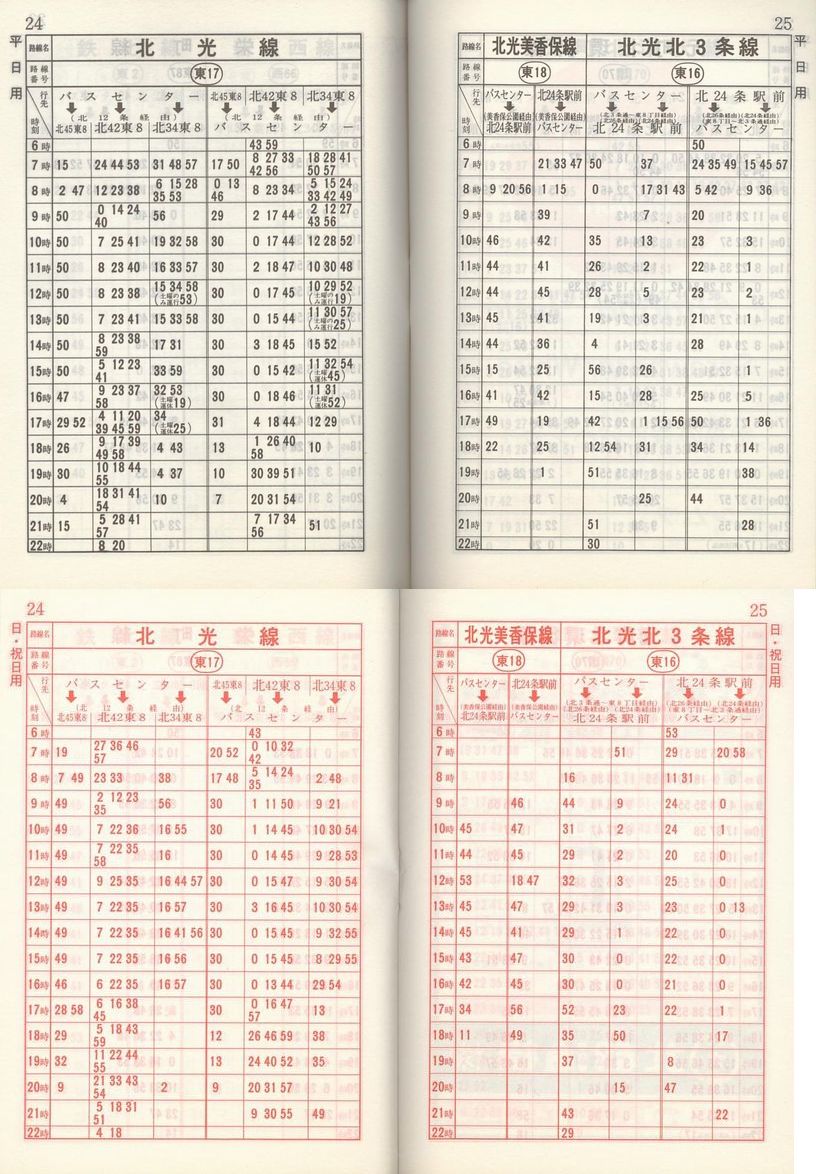 24
平日用
路線名 北光線
路線番号 東17
行先 バスセンター 北45東8 北42東8 北34東8
(北12条経由) (北12条経由)
時刻 北45東8 北42東8 北34東8 バスセンター
6時 43 59
7時 15 24 44 53 31 48 57 17 50 8 27 33 42 56 18 28 41 50 57
8時 2 47 12 23 38 6 15 28 35 53 0 13 46 8 23 34 5 15 24 33 42 49
9時 50 0 14 24 40 56 29 2 17 44 2 12 27 43 56
10時 50 7 25 41 19 32 58 30 0 17 44 12 28 52
11時 50 8 23 40 16 33 57 30 2 18 47 10 30 48
12時 50 8 23 38 15 34 58 (土曜のみ運行53) 30 0 17 45 10 29 52 (土曜のみ運行19)
13時 50 7 23 41 15 33 58 30 0 15 44 11 30 57 (土曜のみ運行25)
14時 50 8 23 38 59 17 31 30 3 18 45 15 52
15時 50 5 12 23 41 33 59 30 0 15 42 11 32 54 (土曜運休45)
16時 47 9 23 37 58 32 53 (土曜運休19) 30 0 18 46 11 31 (土曜運休52)
17時 29 52 4 11 20 39 45 59 34 (土曜運休25) 31 4 18 44 12 29
18時 26 9 17 39 49 58 4 43 13 1 26 40 58 10
19時 30 10 18 44 55 4 37 10 30 39 51
20時 4 18 31 41 54 10 7 20 31 54
21時 15 5 28 41 57 7 17 34 56 51
22時 8 20
25
平日用
路線名 北光美香保線 北光北3条線
路線番号 東18 東16
行先 バスセンター 北24条駅前 バスセンター 北24条駅前
(美香保公園経由) (美香保公園経由) (北3条通〜東8丁目経由) (北26条経由) (北24条経由) (北26条経由) (北24条経由) (東8丁目〜北3条通経由)
時刻 北24条駅前 バスセンター 北24条駅前 バスセンター
6時 50
7時 21 33 47 50 37 24 35 49 15 45 57
8時 9 20 56 1 15 0 17 31 43 5 42 9 36
9時 50 39 7 20
10時 46 42 35 13 23 3
11時 44 41 26 2 22 1
12時 44 45 28 5 23 2
13時 45 41 19 3 21 1
14時 44 36 4 28
15時 15 25 56 26 1
16時 41 42 15 28 25 5
17時 49 19 42 1 15 56 50 1 36
18時 22 25 12 54 31 34 14
19時 1 51 38
20時 25 44
21時 51 28
22時 30
24
日・祝日用
路線名 北光線
路線番号 東17
行先 バスセンター 北45東8 北42東8 北34東8
(北12条経由) (北12条経由)
時刻 北45東8 北42東8 北34東8 バスセンター
6時 43
7時 19 27 36 46 57 20 52 0 10 32 42
8時 7 49 23 33 38 17 48 5 14 24 35 2 48
9時 49 2 12 23 35 56 30 1 11 50 9 21
10時 49 7 22 36 16 55 30 1 14 45 10 30 54
11時 49 7 22 35 58 16 30 0 14 45 9 28 53
12時 49 9 25 35 16 44 57 30 0 15 47 9 30 54
13時 49 7 22 35 16 57 30 3 16 45 10 30 54
14時 49 7 22 35 16 41 56 30 0 15 45 9 32 55
15時 49 7 22 35 16 56 30 0 15 45 8 29 55
16時 46 6 22 35 16 57 30 0 13 44 29 54
17時 28 58 6 16 38 45 30 0 16 47 57 13
18時 29 5 18 43 59 12 26 46 59 38
19時 32 11 22 44 55 13 24 40 52 35
20時 9 21 33 43 54 2 9 20 31 57
21時 5 18 31 51 9 30 55 49
22時 4 18
25
日・祝日用
路線名 北光美香保線 北光北3条線
路線番号 東18 東16
行先 バスセンター 北24条駅前 バスセンター 北24条駅前
(美香保公園経由) (美香保公園経由) (北3条通〜東8丁目経由) (北26条経由) (北24条経由) (北26条経由) (北24条経由) (東8丁目〜北3条通経由)
時刻 北24条駅前 バスセンター 北24条駅前 バスセンター
6時 53
7時 51 29 20 58
8時 16 11 31
9時 46 44 9 24 0
10時 45 47 31 2 24 1
11時 44 45 29 2 20 0
12時 53 18 47 32 3 25 0
13時 45 47 29 3 23 0 13
14時 45 41 29 1 22 0
15時 43 47 30 0 22 0
16時 42 45 30 0 21 0
17時 34 56 52 23 22 1
18時 11 49 35 50 17
19時 37 8
20時 15 47
21時 43 22
22時 29